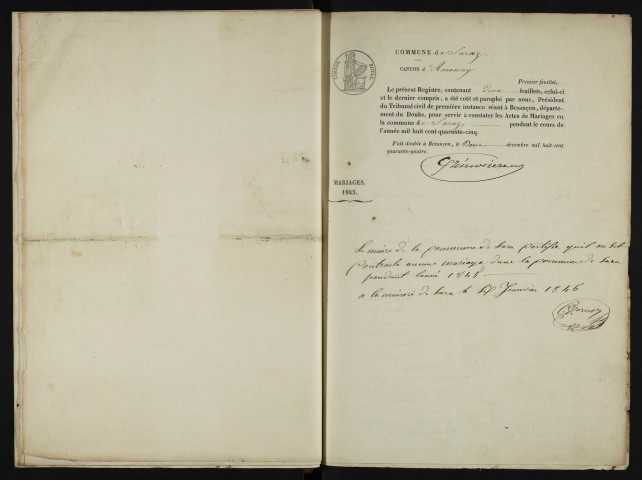 TIMBRE ROYAL
COMMUNE de Saraz
CANTON d'Amancey
Premier feuillet.
Le présent Registre, contenant Deux feuillets, celui-ci
et le dernier compris, a été coté et paraphé par nous, Président
du Tribunal civil de première instance séant à Besançon, départe-
ment du Doubs, pour servir à constater les Actes de Mariages en
la commune de Saraz pendant le cours de
l'année mil huit cent quarante-cinq.
Fait double à Besançon, le Douze décembre mil huit cent
quarante-quatre.
MARIAGES.
1845.
Le maire de la commune de Sara certifie quil ne set
contracté aucune mariage dans la commune de Sara
pandant lanné 1845
a la mairiri de Sara le Janvier 1846